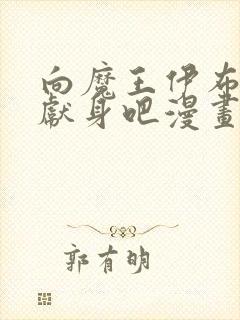 向魔王伊布
獻身吧漫畫
郭有明